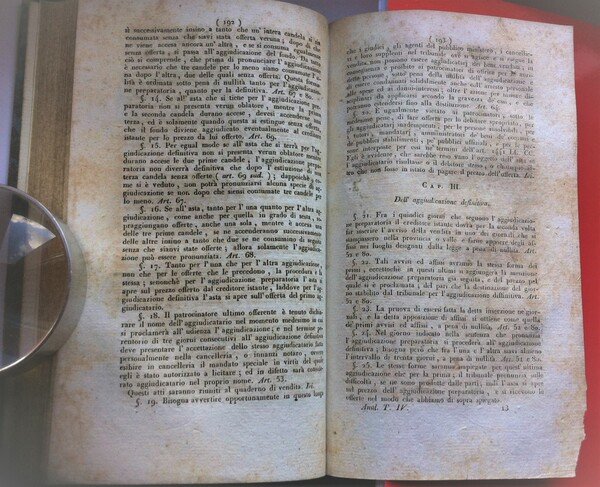 ( 192 )
sì successivamente insino a tanto che un'intera candela si sia
consumata senza che siavi stata offerta veruna ; dopo di che
ne viene accesa ancora un'altra , e se si consuma egualmente
senza offerta , si passa all'aggiudicazione del fondo. Da tutto
ciò si comprende , che prima di pronunciare l'aggiudicazione
è necessario che tre candele per lo meno siansi consumate l'una
dopo l'altra , due delle quali senza offerta. Questa formalità
è ordinata sotto pena di nullità tanto per l'aggiudicazione
preparatoria , quanto per la definitiva. Art. 67 e 80.
§. 14. Se all'asta che si tiene per l'aggiudicazione preparatoria
non si presenta verun oblatore , mentre la prima
e la seconda candela durano accese , devesi accendere la
terza , ed è solamente quando questa si estingue senza offerta,
che il fondo diviene aggiudicato eventualmente al creditore
istante per lo prezzo da lui offerto. Art. 69.
§. 15. Per egual modo se all'asta che si terrà per l'aggiudicazione
definitiva non si presenta verun oblatore mentre
durano accese le due prime candele , l'aggiudicazione preparatoria
non diverrà definitiva che dopo l'estinzione di una
terza candela senza offerte ( art. 69 sud. ) ; dappoichè , come
si è veduto , non potrà pronunciarsi alcuna specie di aggiudicazione
se non dopo che siensi consumate tre candele per
lo meno. Art. 67.
§. 16. Se all'asta , tanto per l'una quanto per l'altra
aggiudicazione , come anche per quella in grado di sesta , si
preggiungono offerte , anche una sola , mentre è accesa una
delle tre prime candele , se ne accenderanno successivamente
delle altre insino a tanto che due se ne consumino di seguito
senza che sianvi state offerte ; allora solamente l'aggiudicazione
può essere pronunciata. Art. 68.
§. 17. Tanto per l'una che per l'altra aggiudicazione ,
non che per le offerte che le precedono , la procedura è la
stessa ; senonchè per l'aggiudicazione preparatoria l'asta si
apre sul prezzo offerto dal creditore istante , laddove per l'aggiudicazione
definitiva l'asta si apre sull'offerta del primo aggiudicatario.
§. 18. Il patrocinatore ultimo offerente è tenuto dichiarare
il nome dell'aggiudicatario nel momento medesimo in cui
si proclamerà all'udienza l'aggiudicazione ; e nel termine perentorio
di tre giorni consecutivi all'aggiudicazione definitiva
deve presentare l'accettazione dello stesso aggiudicatario fatta
personalmente nella cancelleria , o innanzi notaro , ovvero
esibire in cancelleria il mandato speciale in virtù del quale
egli è stato autorizzato a licitare ; ed in difetto sarà considerato
aggiudicatario nel proprio nome. Art. 53.
Questi atti saranno riuniti al quaderno di vendita. Ivi.
§. 19. Bisogna avvertire opportunamente in questo luogo
( 193 )
che i giudici , gli agenti del pubblico ministero , i cancellieri
e i loro supplenti nel tribunale ove si segue la
vendita non possono essere aggiudicatari dei beni
conseguenza è proibito ai patrocinatori di offrire per
delle persone , sotto pena della nullità dell'aggiudicazione
e di essere condannati solidalmente anche coll'arresto personale
alle spese ed ai danni-interessi , oltre l'azione per misure
disciplinali da applicarsi secondo la gravezza de' casi , e che
potranno estendersi fino alla destituzione. Art.
§. 20. È egualmente vietato ai patrocinatori , sotto le
stesse pene , di fare offerte per lo debitore spropriato
per gli altri , sieno tutori , curatori , procuratori
aggiudicatari , mandatari , amministratori de' beni dei comuni e
dei pubblici stabilimenti , pe' pubblici uffiziali , e per le persone
interposte per cui ne' termini dell'art. 1441. LL. CC.
Egli è evidente , che sarebbe resa vana l'oggetto
l'aggiudicazione risultasse o il debitore stesso , o qualunque altro
che non fosse in istato di pagare il prezzo dell'offerta.
CAP. III.
Dell'aggiudicazione definitiva.
§. 21. Fra i quindici giorni che seguono l'aggiudicazione
preparatoria il creditore istante dovrà per la seconda volta
far inserire l'avviso della vendita in uno dei giornali che si
stampassero nella provincia o valle , e farne apporre degli affissi
nei luoghi designati dalla legge a pena di nullità. Art.
51 e 80.
§. 22. Tali avvisi ed affissi avranno la stessa forma dei
primi , eccettochè in questi ultimi si aggiungerà la menzione
dell'aggiudicazione preparatoria già seguita , e del prezzo pel
quale si è proclamata , del pari che la destinazione del giorno
stabilito dal tribunale per l'aggiudicazione definitiva. Art.
51 e 80.
§. 23. La pruova di essersi fatta la detta inserzione ne' giornali
, e la detta apposizione di affissi si ottiene come quella
dei primi avvisi ed affissi , a pena di nullità. Art. 52 e 80.
§. 24. Nel giorno indicato nella sentenza che pronunzia
l'aggiudicazione preparatoria si procederà all'aggiudicazione
definitiva ; bisogna però che fra l'una e l'altra siavi almeno
l'intervallo di trenta giorni , a pena di nullità. Art. 52 e 80.
§. 25. Le stesse forme saranno osservate per quest'ultima
aggiudicazione che per la prima ; il tribunale pronunzia sulle
difficoltà , se ne sono prodotte dalle parti , indi l'asta si apre
sul prezzo dell'aggiudicazione preparatoria , e si ricevono le
offerte nel modo che abbiamo di sopra spiegato.
Anal. T. IV. 13